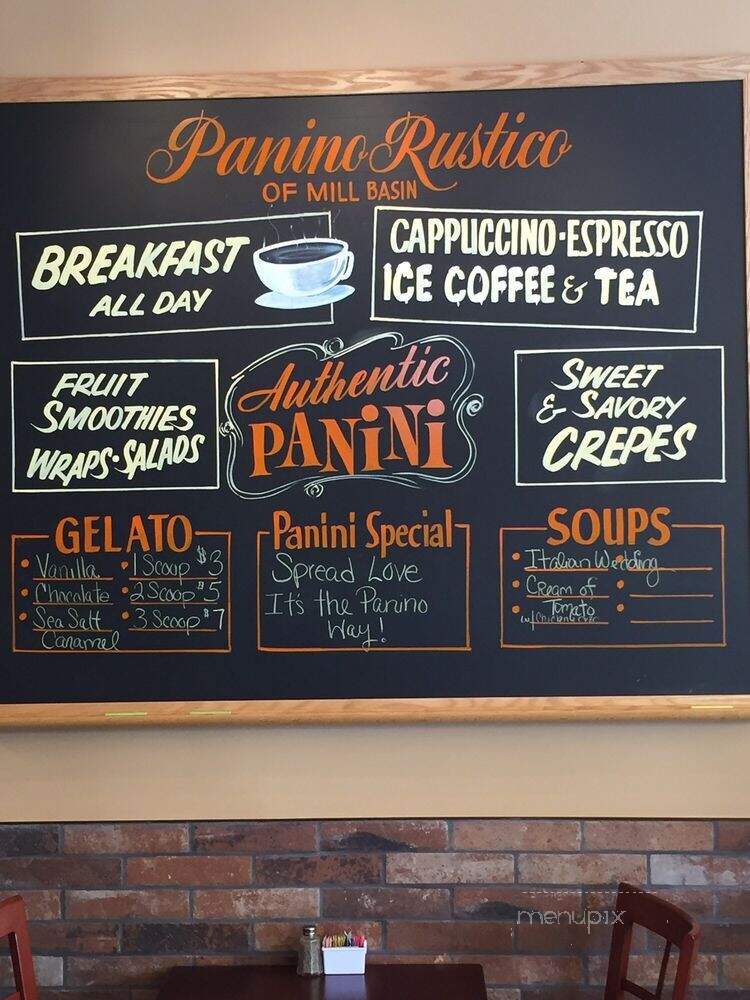 Panino Rustico
OF MILL BASIN
BREAKFAST
ALL DAY
CAPPUCCINO·ESPRESSO
ICE COFFEE & TEA
FRUIT
SMOOTHIES
WRAPS·SALADS
Authentic
PANINI
SWEET
& SAVORY
CREPES
GELATO
• Vanilla • 1 Scoop $3
• Chocolate • 2 Scoop $5
• Sea Salt • 3 Scoop $7
Caramel
Panini Special
Spread Love
It's the Panino
Way!
SOUPS
• Italian Wedding
• Cream of
Tomato
w/ Chicken
menupix